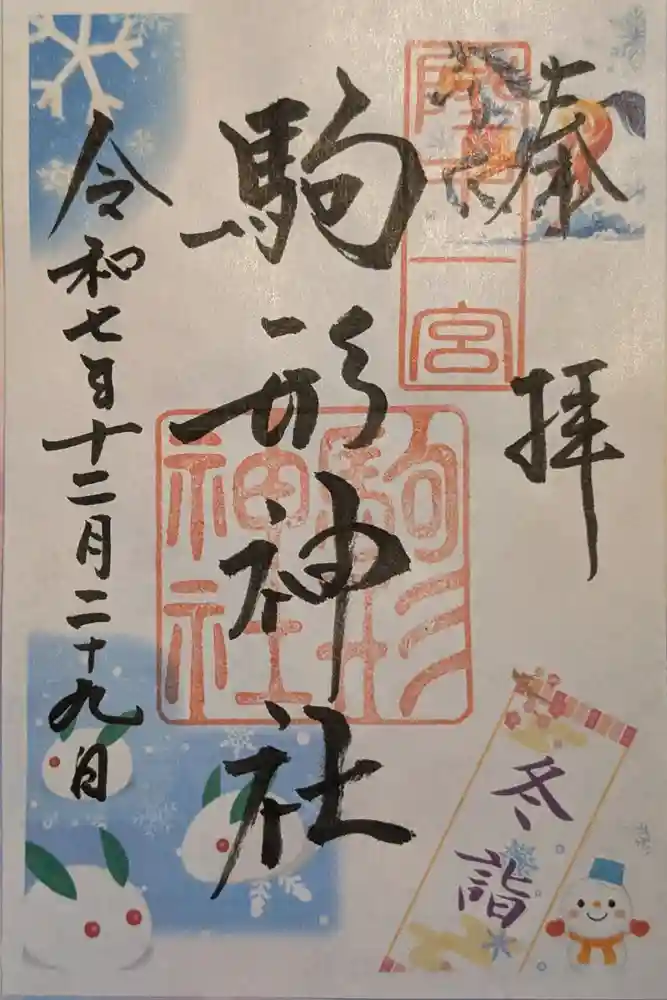 奉拝
陸中一宮
駒形神社
駒形神社
令和七日十二月二十九日
冬詣